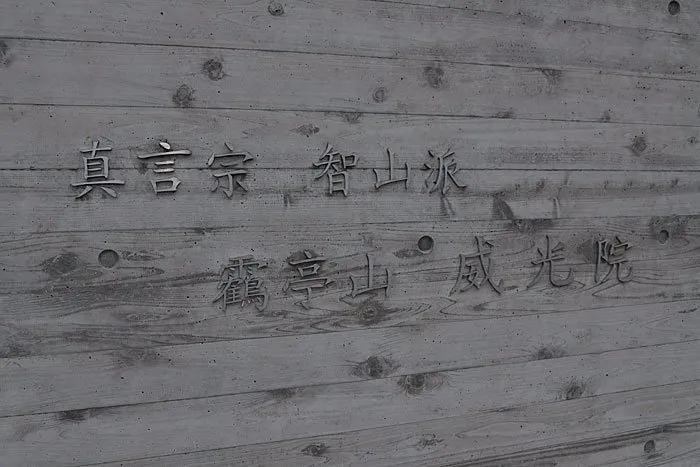 真言宗 智山派
靍亭山 威光院